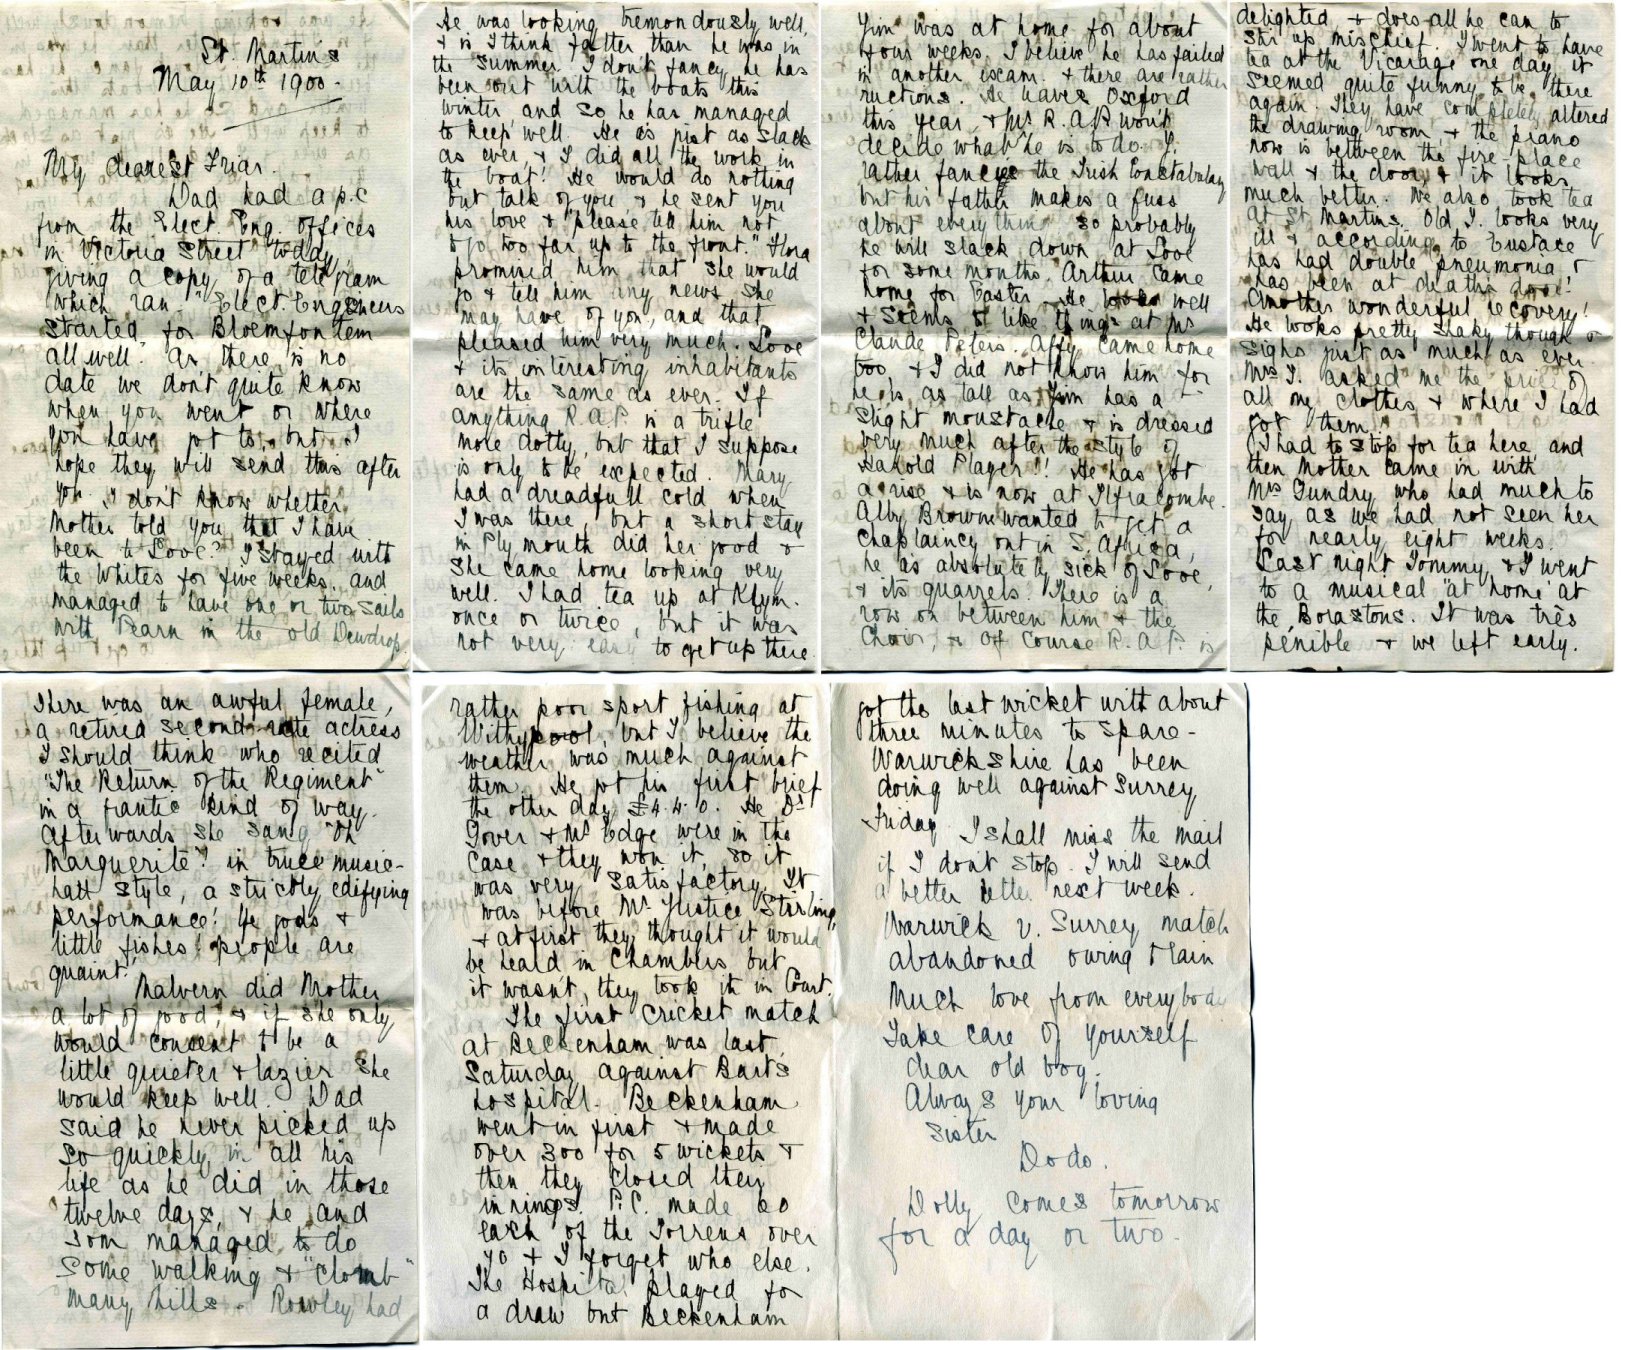 St. Martins
May 10th 1900.
My dearest Friar.
Dad had a p.c
from the Elect. Eng. offices
in Victoria Street today
giving a copy of a telegram
which ran "Elect. Engineers
started for Bloemfontein
all well." As there is no
date we don't quite know
when you went or where
you have got to, but I
hope they will send this after
you. I don't know whether
Mother told you that I have
been to Looe? I stayed with
the Whites for five weeks and
managed to have one or two sails
with Pearn in the old Dewdrop
He was looking tremondously well,
& is I think fatter than he was in
the summer. I don't fancy he has
been out with the boats this
winter and so he has managed
to keep well. He is just as slack
as ever, & I did all the work in
the boat! He would do nothing
but talk of you & he sent you
his love & "please tell him not
to go too far up to the front." Flora
promised him that she would
go & tell him any news she
may have of you, and that
pleased him very much. Looe
& its interesting inhabitants
are the same as ever. If
anything R.A.P. is a trifle
more dotty, but that I suppose
is only to be expected. Mary
had a dreadfull cold when
I was there, but a short stay
in Plymouth did her good &
she came home looking very
well. I had tea up at Klym.
once or twice, but it was
not very easy to get up there.
Jim was at home for about
four weeks. I believe he has failed
in another exam. & there are rather
ructions. He leaves Oxford
this year, & Mr R.A.P. wont
decide what he is to do. J.
rather fancies the Irish Constabulary
but his father makes a fuss
about everything so probably
he will slack down at Looe
for some months. Arthur came
home for Easter. He looks well
& seems to like things at Mr
Claude Peters. Affy came home
too & I did not know him for
he is as tall as Jim has a
slight moustache & is dressed
very much after the style of
Harold Player!! He has got
a rise & is now at Ilfracombe.
Alby Browne wanted to get a
chaplaincy out in S. Africa,
he is absolutely sick of Looe,
& its quarrels. There is a
row on between him & the
Choir, & of course R.A.P. is
delighted & does all he can to
stir up mischief. I went to have
tea at the Vicarage one day, it
seemed quite funny to be there
again. They have completely altered
the drawing room & the piano
now is between the fire-place
wall & the door, & it looks
much better. We also took tea
at St Martins. Old J. looks very
ill & according to Eustace
has had double pneumonia &
has been at deaths door!
Another wonderful recovery!
He looks pretty shaky though &
sighs just as much as ever.
Mrs J. asked me the price of
all my clothes & where I had
got them!
I had to stop for tea here, and
then Mother came in with
Mrs Gundry who had much to
say as we had not seen her
for nearly eight weeks.
Last night Tommy & I went
to a musical "at home" at
the Bolastons. It was très
penible & we left early.
There was an awful female,
a retired second rate actress
I should think who recited
"The Return of the Regiment"
in a frantic kind of way.
Afterwards she sang "Oh
Marguerite"! in truee music-
hall style, a strictly edifying
performance! Ye gods &
little fishes! people are
quaint!
Malvern did Mother
a lot of good, & if she only
would consent to be a
little quieter & lazier she
would keep well. Dad
said he never picked up
so quickly in all his
life as he did in those
twelve days, & he and
Tom managed to do
some walking & "clomb"
many hills. Rowley had
rather poor sport fishing at
Withypool, but I believe the
weather was much against
them. He got his first brief
the other day £4.4.0. He Dr
Gover & Mr Edge were in the
case & they won it, so it
was very satisfactory. It
was before Mr Justice Stirling,
& at first they thought it would
be heard in Chambers but
it wasn't, they took it in Court.
The first cricket match
at Beckenham was last
Saturday against Bart's
hospital. Beckenham
went in first & made
over 300 for 5 wickets &
then they closed their
innings. P.C. made 60
each of the Torrens over
70 & I forget who else.
The Hospital played for
a draw but Beckenham
got the last wicket with about
three minutes to spare.
Warwickshire has been
doing well against Surrey
Friday I shall miss the mail
if I don't stop. I will send
a better letter next week.
Warwick v. Surrey match
abandoned owing to rain
Much love from everybody
Take care of yourself
dear old boy.
Always your loving
sister
Dodo.
Dolly comes tomorrow
for a day or two.